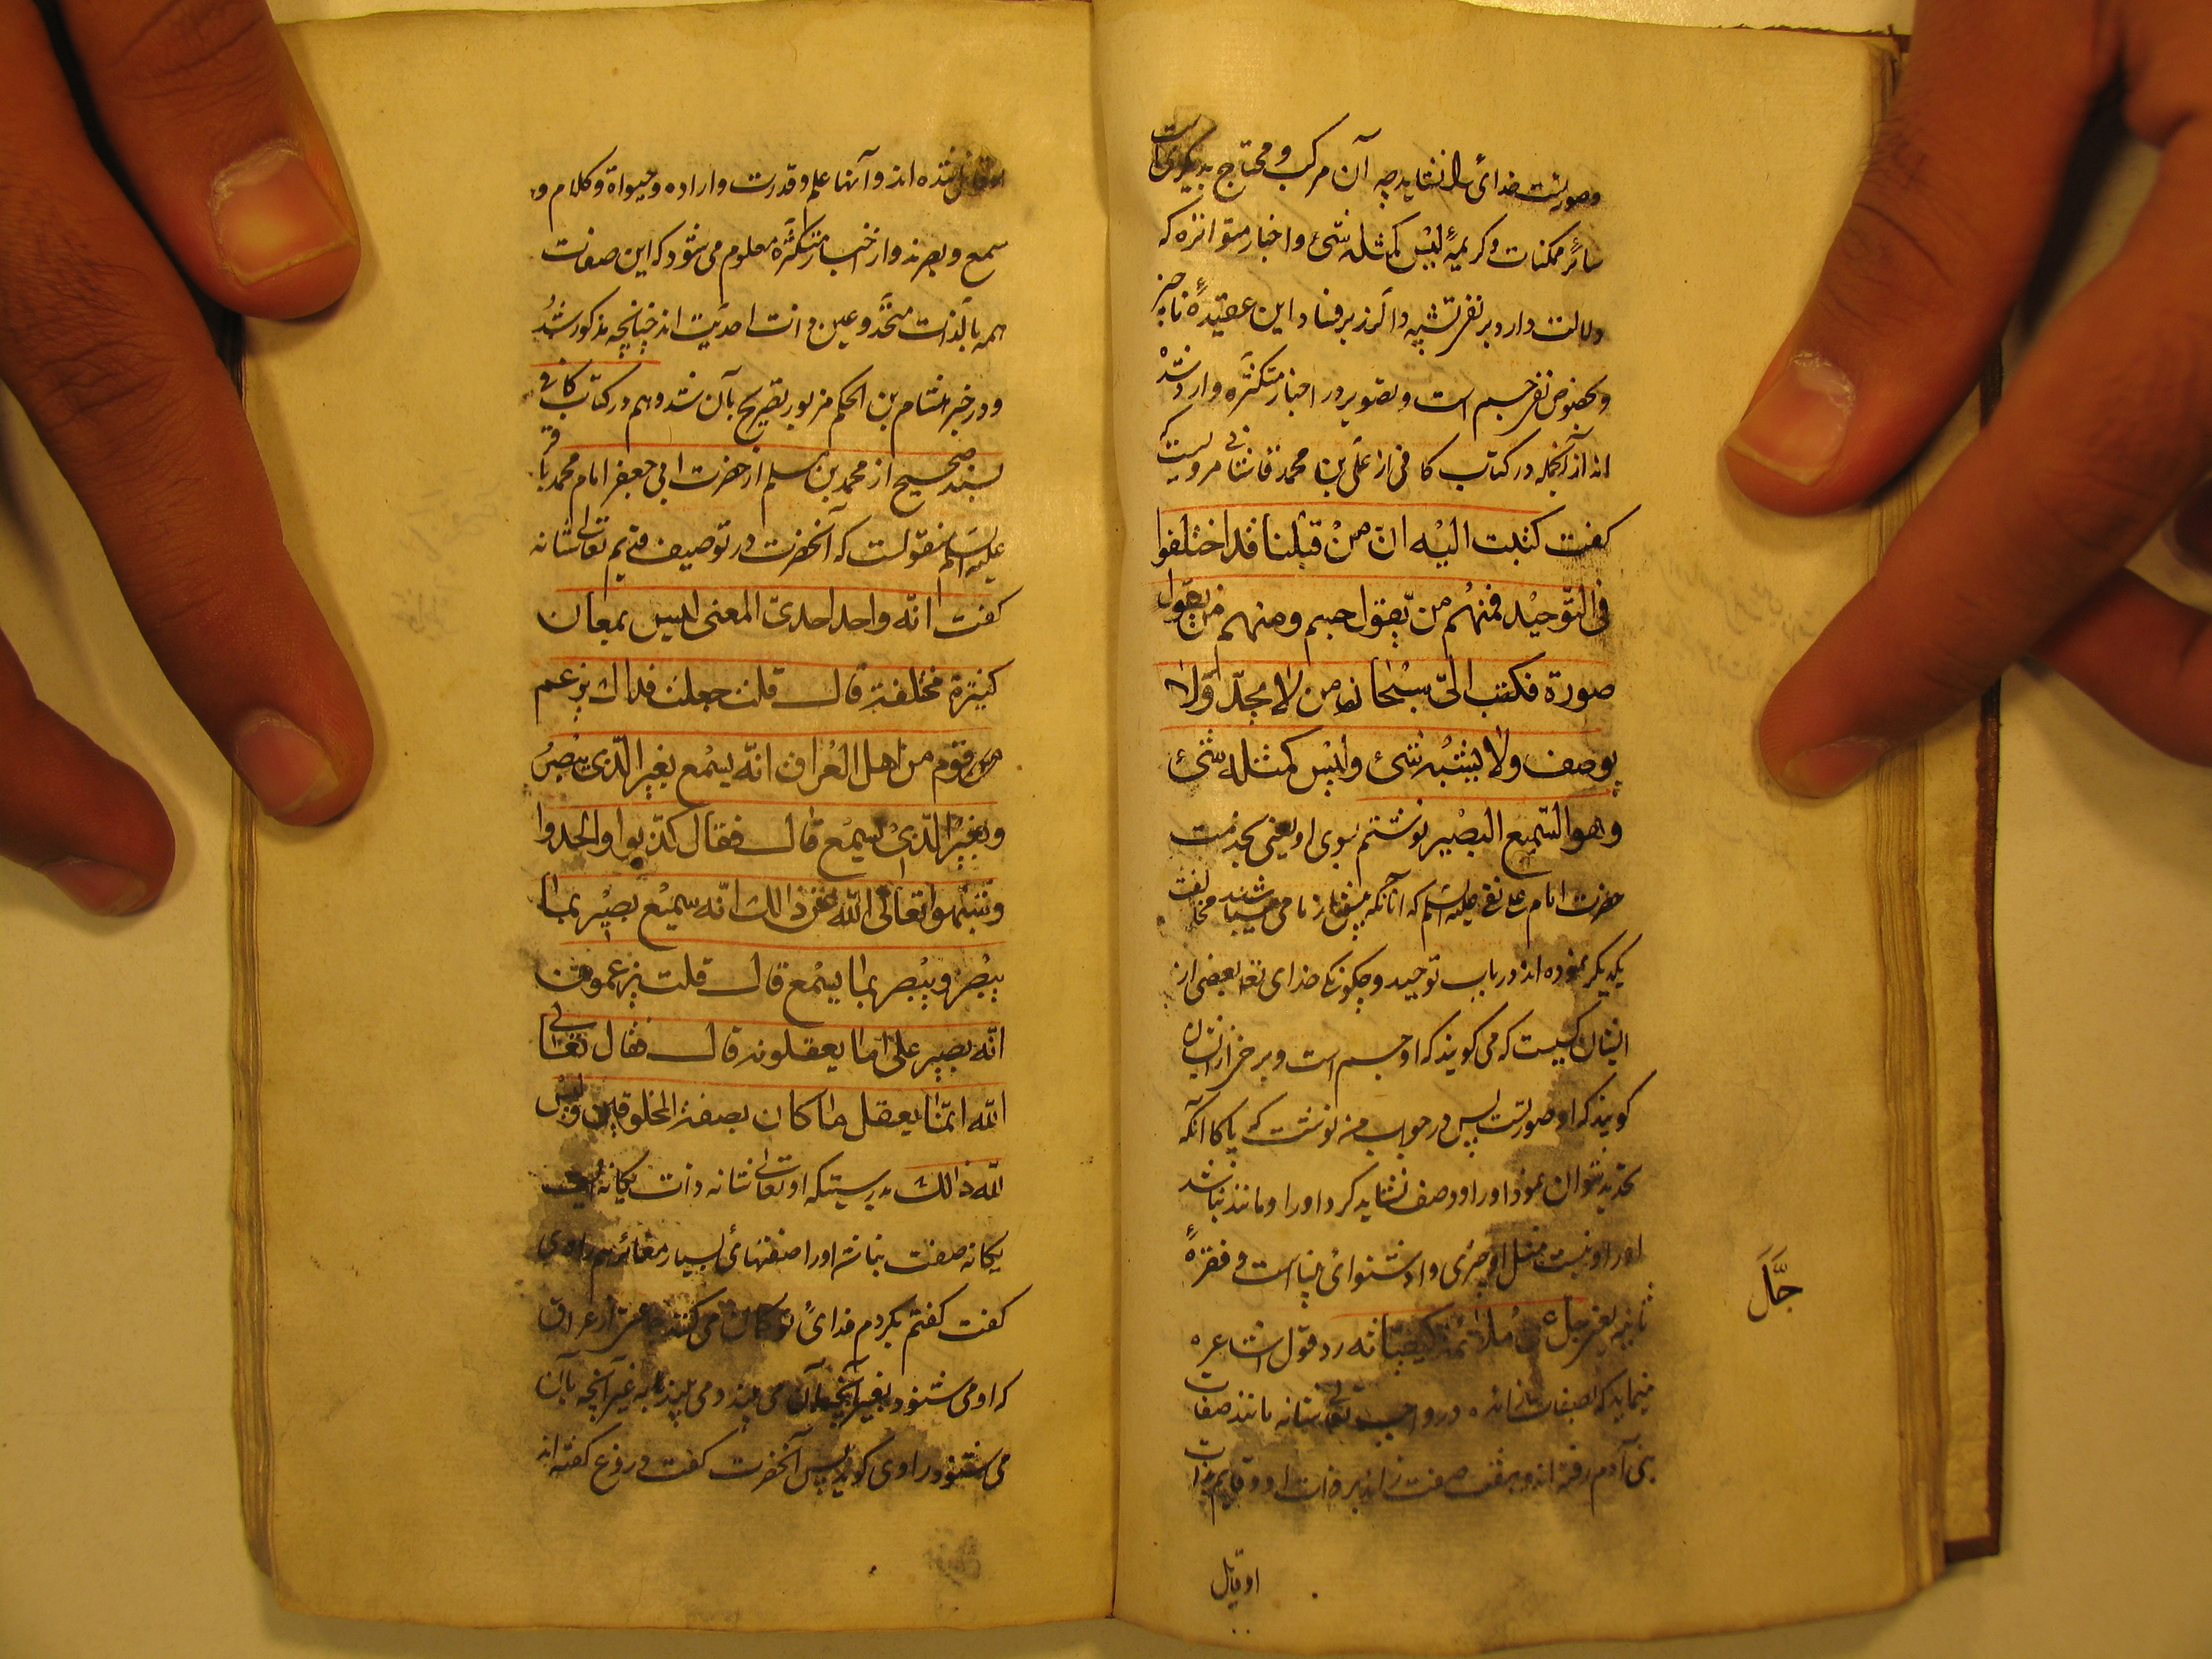 وصورت خدائی را نشاید چه آن مرکب و محتاج بدیگری است
سائر ممکنات و کریمهٔ لیس کمثله شئ و اخبار متواتره که
دلالت دارد بر نفی تشبیه دال‌اند بر فساد این عقیدهٔ ناچیز
و بخصوص نفی جسم است و تصویر در اخبار متکثره وارد شده
اند از آنجمله در کتاب کافی از علی بن محمد قاشانی مرویست که
کفت کتبت الیه ان من قبلنا قد اختلفوا
فی التوحید فمنهم من یقول جسم ومنهم من یقول
صورة فکتب الیّ سبحان من لا یحدّ ولا
یوصف ولا یشبه شئ ولیس کمثله شئ
وهو السمیع البصیر نوشتم بسوی او یعنی بخدمت
حضرت امام علی نقی علیه السلم که آنانکه پیش از ما می‌باشند مخالفت
یکدیکر نموده اند در باب توحید و چکونکی خدای تعا بعضی از
ایشان کسیست که می کویند که او جسم است و برخی از ایشان
کویند که او صورتست پس در جواب من نوشت که پاکا آنکه
تحدید نتوان نمود او را و وصف نشاید کرد او را و مانند نباشد
او را و نیست مثل او چیزی و او شنوای بیناست و فقرهٔ
ثانیه یعنی جل عن ملائمة کیفیاته رد قول اشاعره
مینماید که بصفات زائده در واجب تعالی شانه مانند صفات
بنی آدم رفته اند و بهفت صفت زاید بر ذات او و قایم بذات
او قایل
جَلَّ
او قایل شده اند و آنها علم و قدرت و اراده و حیواة و کلام و
سمع و بصرند و از اخبار متکثره معلوم می شود که این صفات
همه بالذات متحد و عین ذات احدیت اند چنانچه مذکور شد
و در خبر هشام بن الحکم مزبور تصریح بآن شد و هم در کتاب کافی
بسند صحیح از محمد بن مسلم از حضرت ابی جعفر امام محمد باقر
علیه السلم منقولست که آنحضرت در توصیف قدیم تعالی شانه
کفت انّه واحد احدیّ المعنی لیس بمعان
کثیرة مختلفة قال قلت جعلت فداک یزعم
قوم من اهل العراق انّه یسمع بغیر الّذی یبصر
و یبصر بغیر الّذی یسمع قال فقال کذبوا و الحدوا
و شبّهوا تعالی الله عن ذالک انّه سمیع بصیر یسمع بما
یبصر و یبصر بما یسمع قال قلت یزعمون
انّه بصیر علی ما یعقلونه قال فقال تعالی
الله انّما یعقل ما کان بصفة المخلوقین و لیس
الله ذالک بدرستیکه او تعالی شانه ذات یکانهٔ
یکانه صفت نباشد او را صفتهای بسیار مغائر هم راوی
کفت کفتم بکردم فدای تو کمان می کنند جماعتی از عراق
که او می شنود بغیر آنچه بآن می بیند و می بیند بغیر آنچه بآن
می شنود راوی کوید پس آنحضرت کفت دروغ کفته اند